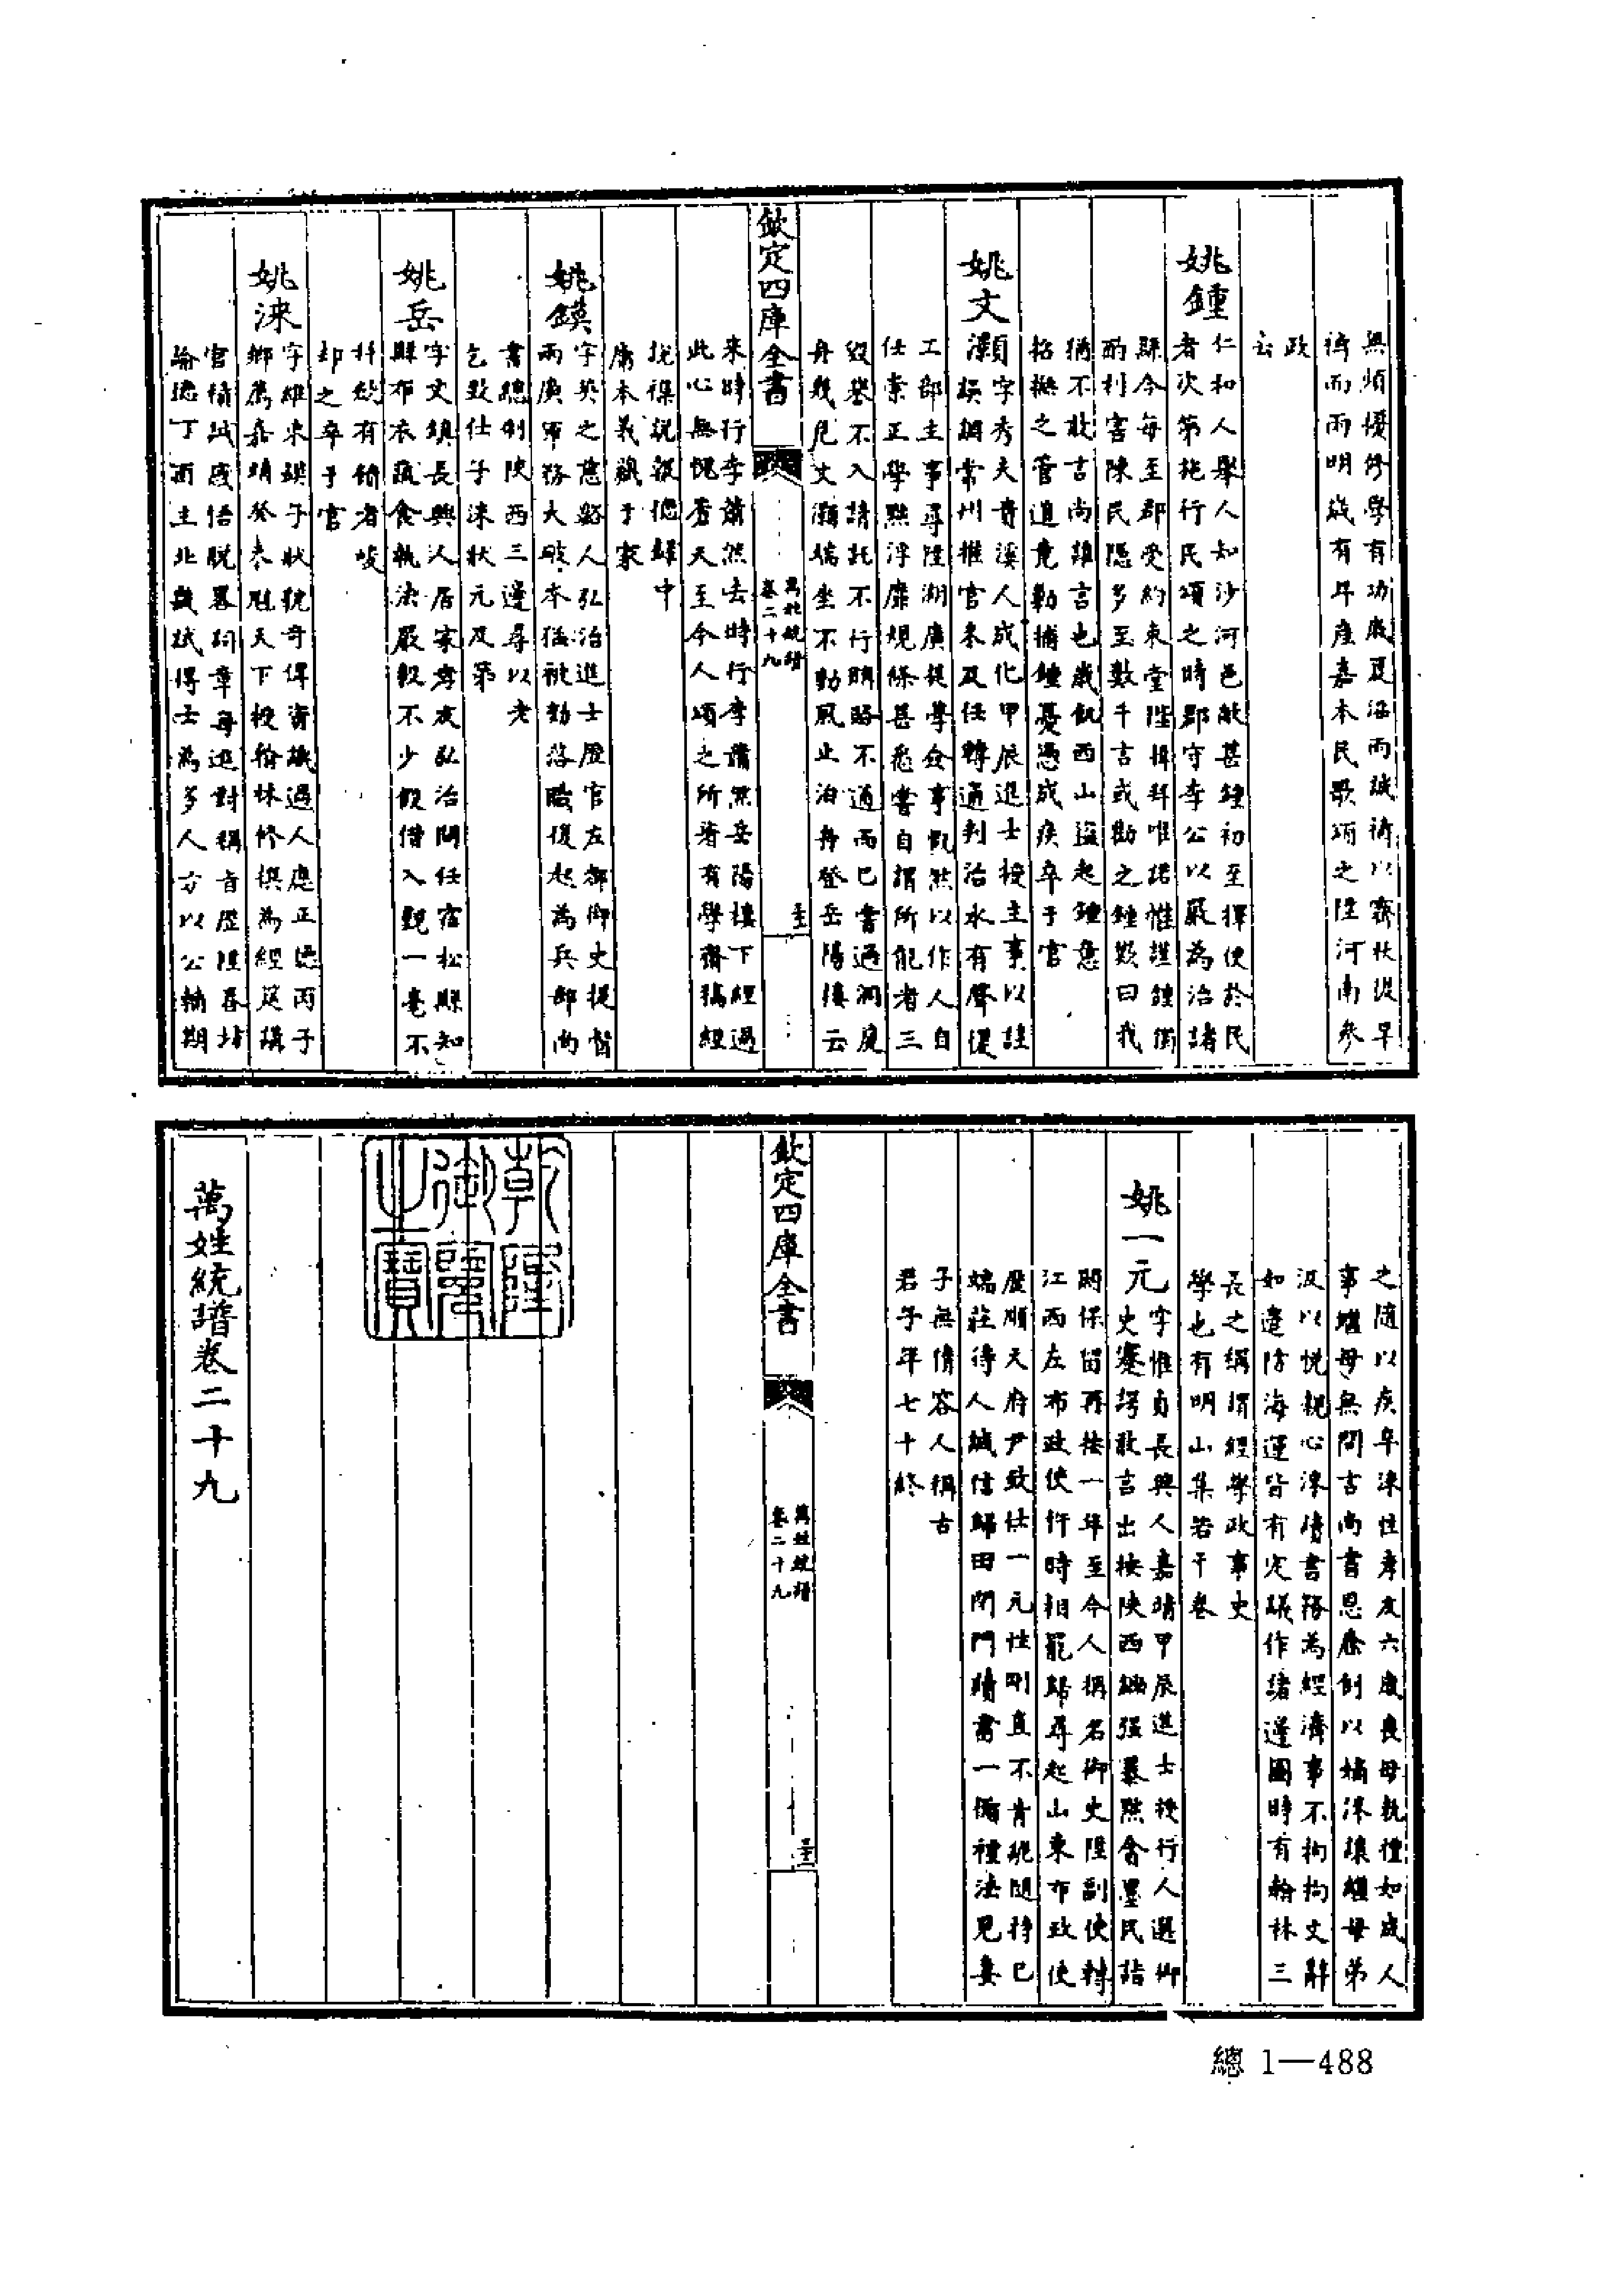 無煩擾修學有功歲旱沿而誠禱以齋狀從早
禱而雨明歲有年産嘉禾民歌頌之陞河南參
政
云
姚鍾
仁和人舉人知沙河邑敝甚鍾初至擇便於民
者次第施行民頌之時郡守李公以嚴為治諸
縣令每至郡受約束堂陛揖拜唯諾惟謹鍾衡
酌利害陳民隱多至數千言或勸之鍾歎曰我
猶不敢言尚誰言也歲飢西山盜起鍾意
招撫之管道竟勒捕鍾憂憑成疾卒于官
姚文灝
字秀夫貴溪人成化甲辰進士授主事以詿
誤謫常州推官未及任轉通判治水有聲復
工部主事尋陞湖廣提學僉事慨然以作人自
任崇正學黜浮靡規條甚悉嘗自謂所能者三
毀譽不入請託不行賄賂不通而已嘗過洞庭
舟幾危文灝端坐不動風止泊舟登岳陽樓云
欽定四庫全書
萬姓統譜
卷二十九
來時行李蕭然去時行李蕭然岳陽樓下經過
此心無愧蒼天至今人頌之所著有學齋稿經
說禮説叢儗辭中
庸本義藏于家
姚鏌
字英之慈谿人弘治進士歷官左都御史提督
兩廣軍務大破本猛被劾落職復起為兵部尚
書總制陝西三邊尋以老
乞致仕子淶狀元及第
姚岳
字文鎮長興人居家孝友弘治間任宿松縣知
縣布衣蔬食執法嚴毅不少假借入覲一毫不
科歛有餽者峻
却之卒于官
姚淶
字維東鏌子狀貌奇偉資識過人應正德丙子
鄉薦嘉靖癸未魁天下授翰林修撰為經筵講
官積誠感悟脱畧詞章每進對稱旨歷陞春坊
諭德丁酉主北畿試得士為多人方以公輔期
之隨以疾卒淶性孝友六歲喪母執禮如成人
事繼母無間言尚書恩廕例以嫡淶讓繼母弟
汲以悦親心淶讀書務為經濟事不拘拘文辭
如邊防海運皆有定議作諸邊圖時有翰林三
長之稱謂經學政事史
學也有明山集若干卷
姚一元
字惟貞長興人嘉靖甲辰進士授行人選御
史謇諤敢言出按陝西鋤强暴黜貪墨民詣
闕保留再按一年至今人稱名御史陞副使轉
江西左布政使忤時相罷歸尋起山東布政使
歷順天府尹致仕一元性剛直不肯詭隨持己
端莊待人誠信歸田閉門讀書一循禮法見妻
子無惰容人稱古
君子年七十終
欽定四庫全書
萬姓統譜
卷二十九
乾隆御覽之寶
萬姓統譜卷二十九
總 1—488